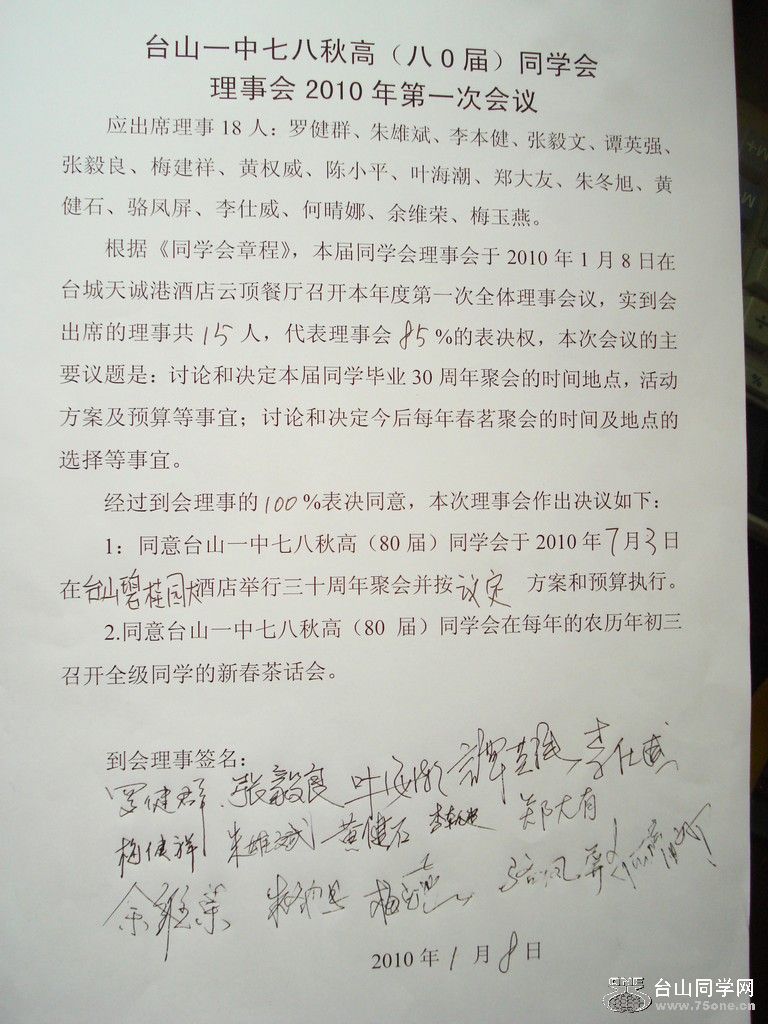 台山一中七八秋高（八0届）同学会
理事会 2010 年第一次会议
应出席理事 18 人：罗健群、朱雄斌、李本健、张毅文、谭英强、
张毅良、梅建祥、黄权威、陈小平、叶海潮、郑大友、朱冬旭、黄
健石、骆凤屏、李仕威、何晴娜、余维荣、梅玉燕。
根据《同学会章程》，本届同学会理事会于 2010 年 1 月 8 日在
台城天诚港酒店云顶餐厅召开本年度第一次全体理事会议，实到会
出席的理事共 15 人，代表理事会 85 %的表决权，本次会议的主
要议题是：讨论和决定本届同学毕业 30 周年聚会的时间地点，活动
方案及预算等事宜；讨论和决定今后每年春茗聚会的时间及地点的
选择等事宜。
经过到会理事的 100 %表决同意，本次理事会作出决议如下：
1：同意台山一中七八秋高（80 届）同学会于 2010 年 7 月 3 日
在台山碧桂园大酒店举行三十周年聚会并按 议定 方案和预算执行。
2.同意台山一中七八秋高（80 届）同学会在每年的农历年初三
召开全级同学的新春茶话会。
到会理事签名：
罗健群 张毅良 叶海潮 谭英强 李仕威
梅健祥 朱雄斌 黄健石 郑大有
余维荣 骆凤屏
2010 年 1 月 8 日
台山同学网
www.75one.cn